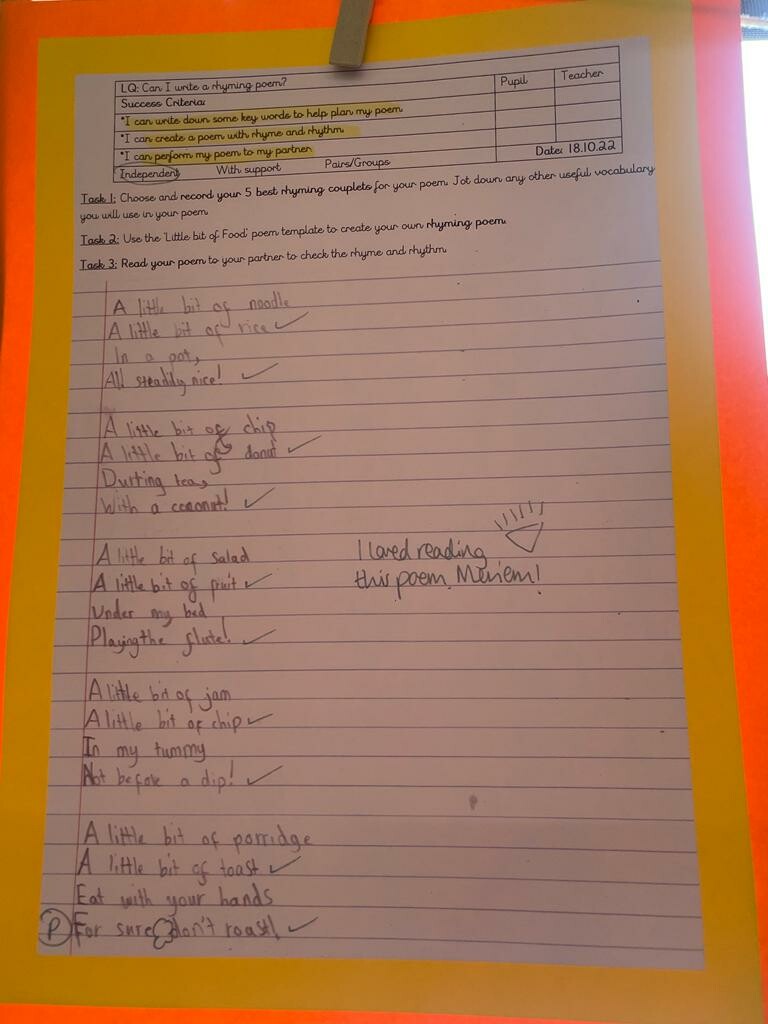 LQ: Can I write a rhyming poem?
Pupil
Teacher
Success Criteria:
*I can write down some key words to help plan my poem
*I can create a poem with rhyme and rhythm
*I can perform my poem to my partner
Independent With support Pairs/Groups Date: 18.10.22
Task 1: Choose and record your 5 best rhyming couplets for your poem. Jot down any other useful vocabulary
you will use in your poem.
Task 2: Use the 'Little bit of Food' poem template to create your own rhyming poem.
Task 3: Read your poem to your partner to check the rhyme and rhythm.
A little bit of noodle
A little bit of rice
In a pot,
All steadily nice!
A little bit of chip
A little bit of donut
Durting tea,
With a coconut!
A little bit of salad
A little bit of fruit
Under my bed
Playing the flute!
I loved reading
this poem, Meriem!
A little bit of jam
A little bit of chip
In my tummy
Not before a dip!
A little bit of porridge
A little bit of toast
Eat with your hands
P For sure don't roast!